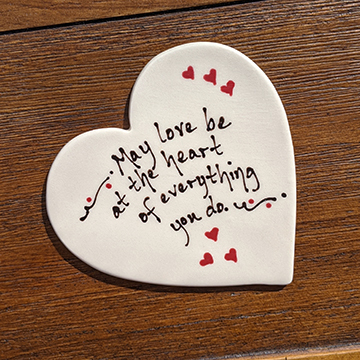 May love be
at the heart
of everything
you do.